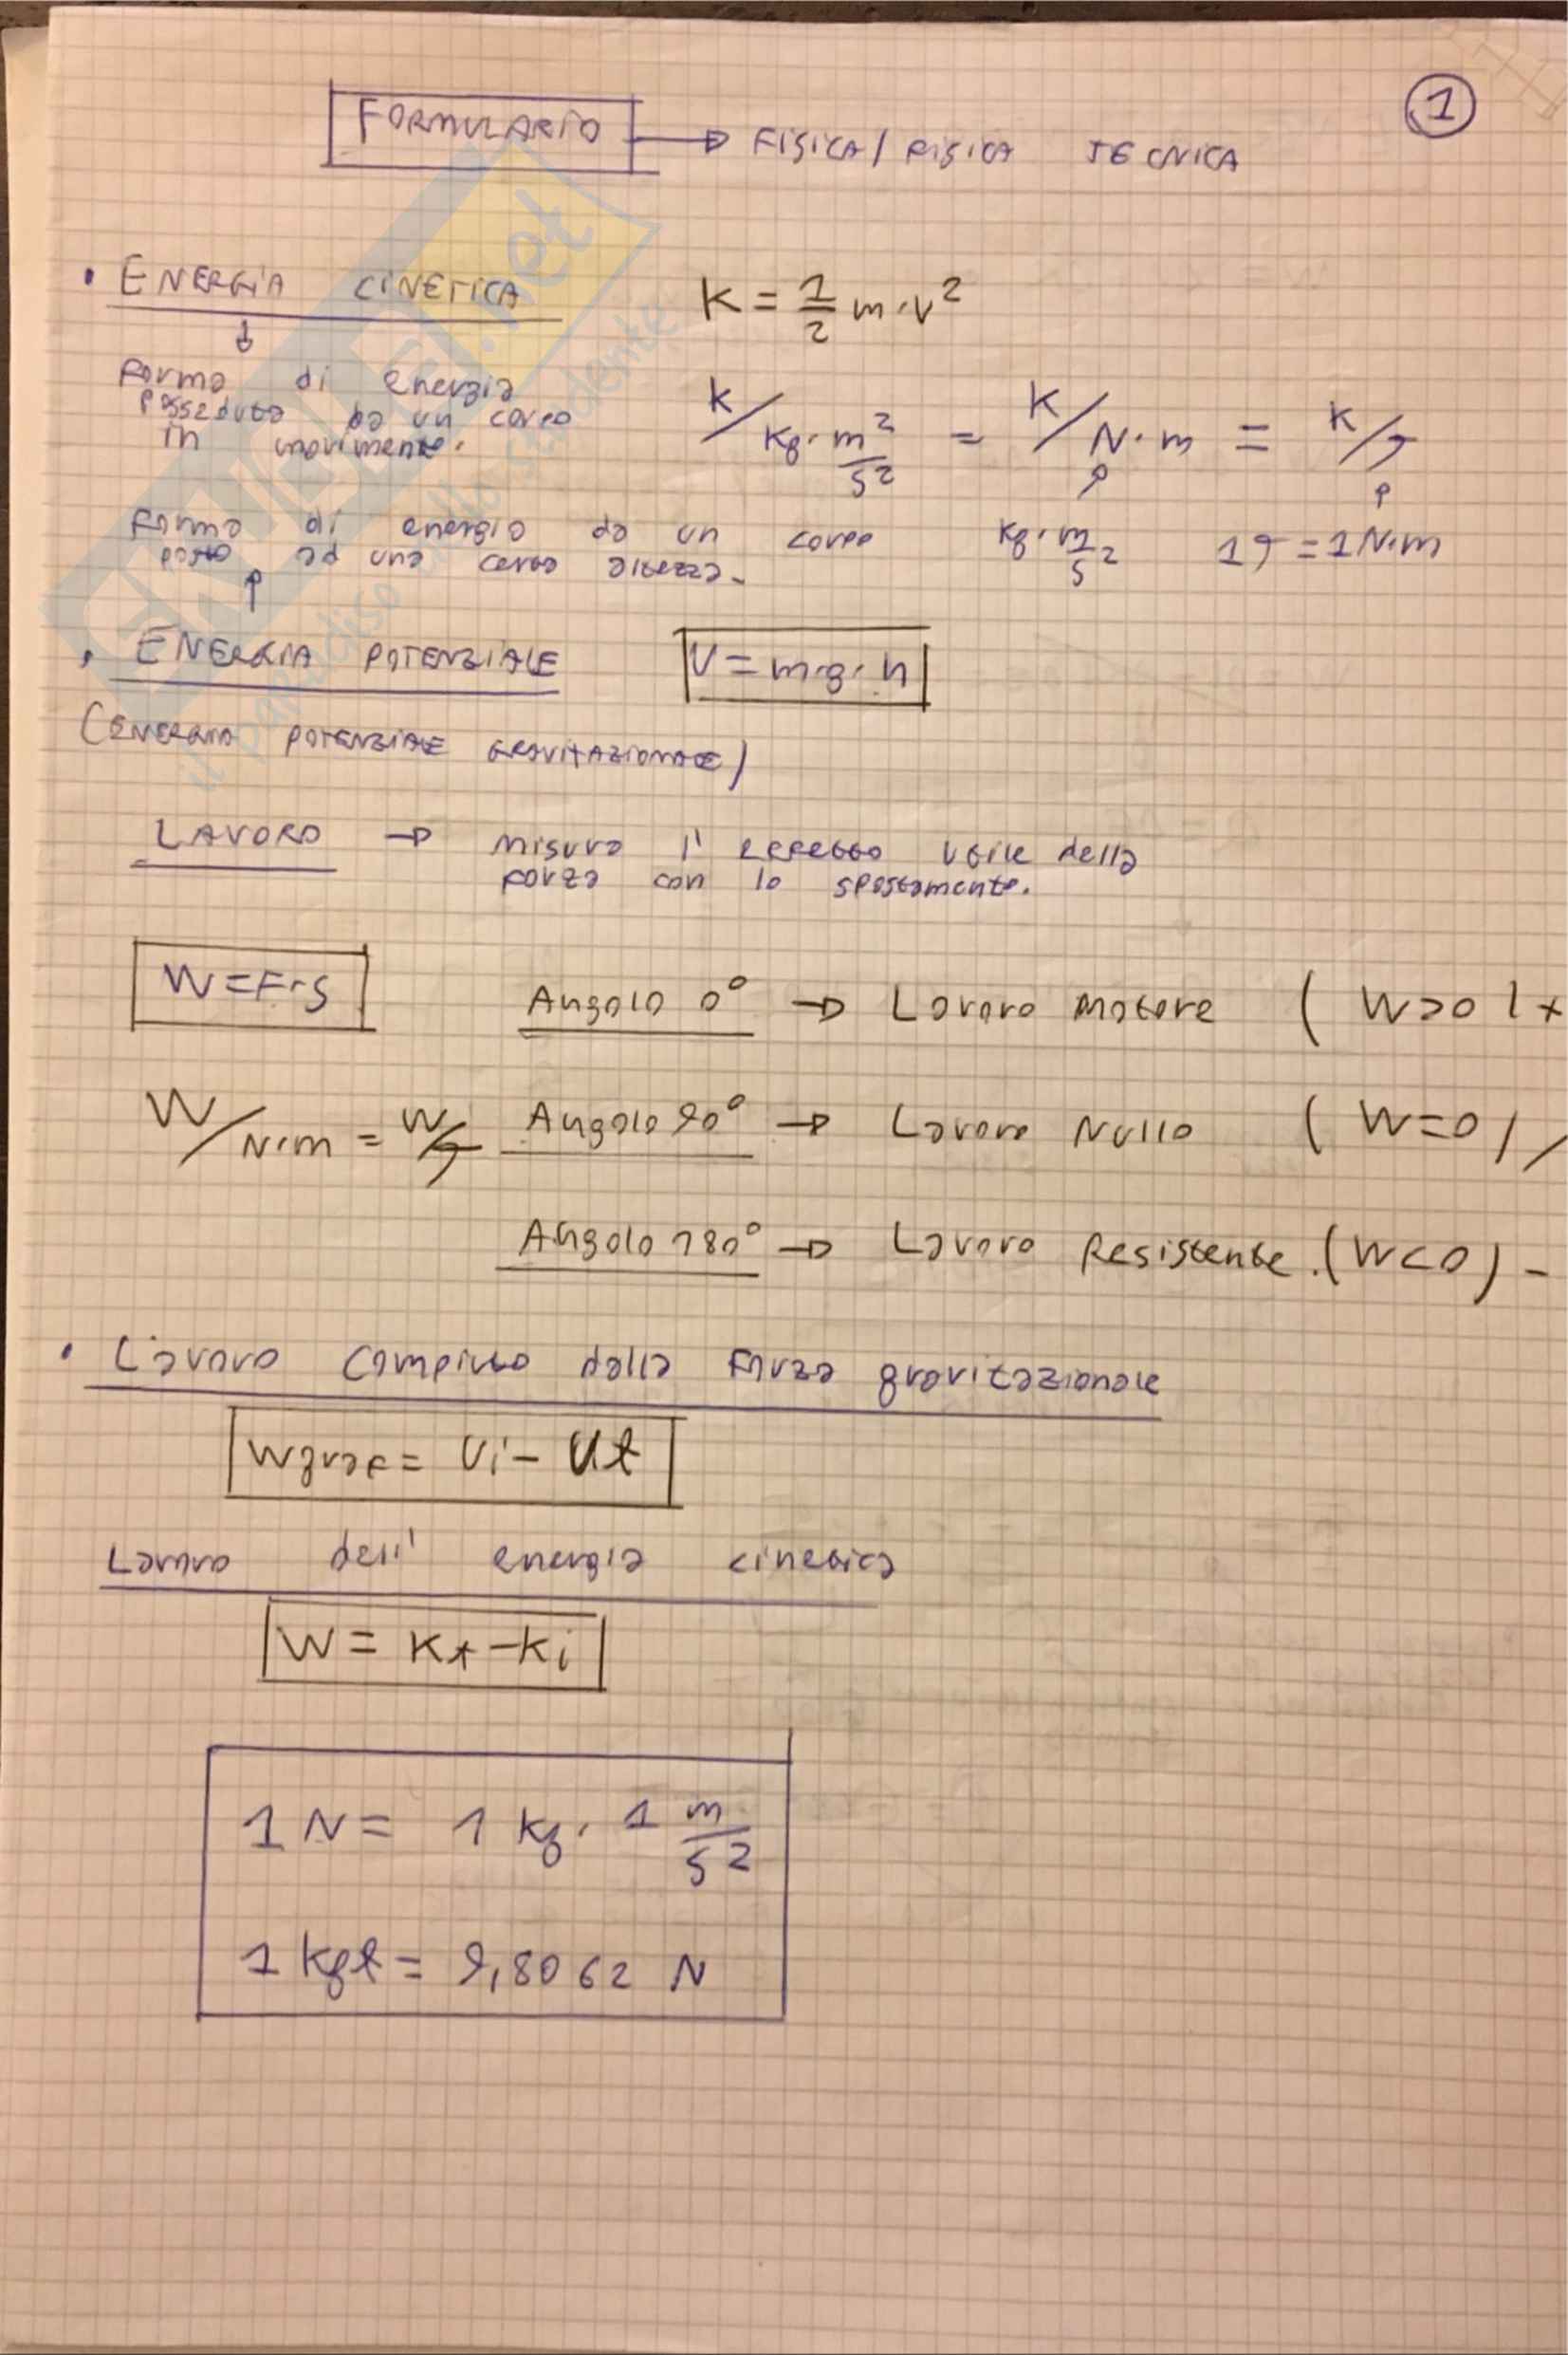 1
FORMULARIO → FISICA / FISICA TECNICA
• ENERGIA CINETICA K = 1/2 m·v²
↓
Forma di energia
posseduta da un corpo
in movimento.
K/kg·m²/s² = K/N·m = K/J
Forma di energia da un corpo kg·m/s² 1J = 1N·m
posto ad una certa altezza.
• ENERGIA POTENZIALE U = m·g·h
(ENERGIA POTENZIALE GRAVITAZIONALE)
LAVORO → misura l'effetto utile della
forza con lo spostamento.
W = F·s Angolo 0° → Lavoro Motore ( W>0 ) +
W/N·m = W/J Angolo 90° → Lavoro Nullo ( W=0 ) /
Angolo 180° → Lavoro Resistente. (W<0) -
• Lavoro compiuto dalla forza gravitazionale
Wgrav = Ui - Uf
Lavoro dell' energia cinetica
W = Kf - Ki
1 N = 1 kg · 1 m/s²
1 kgf = 9,8062 N